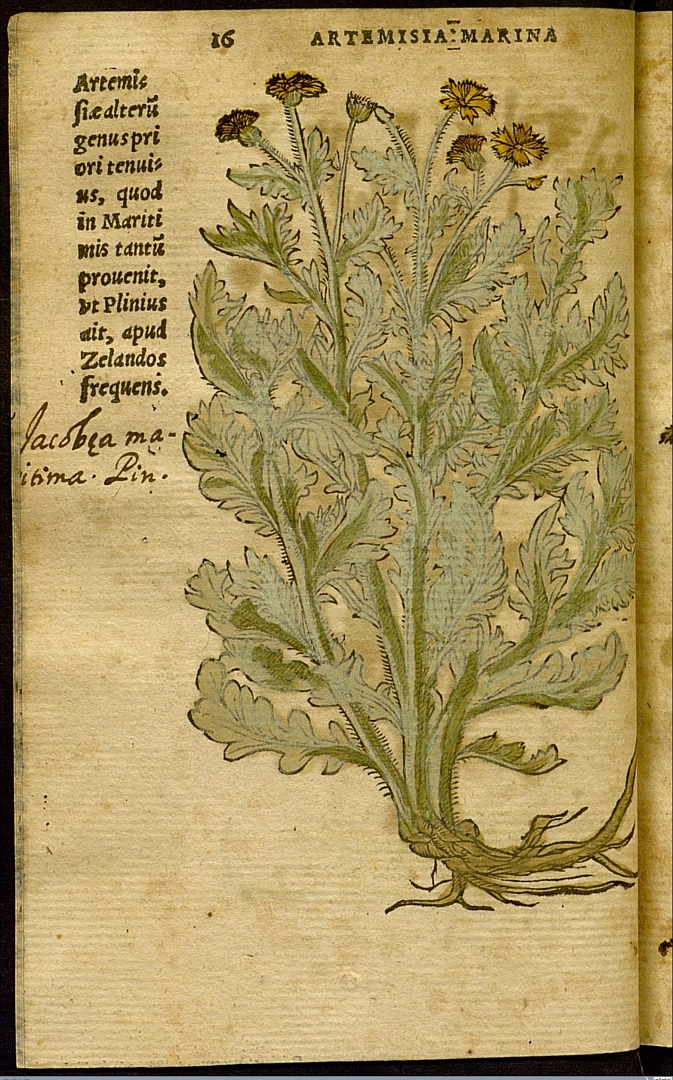 16 ARTEMISIA MARINA
Artemis
siæ alterũ
genus pri
ori tenui⸗
us, quod
in Mariti
mis tantũ
prouenit,
vt Plinius
ait, apud
Zelandos
frequens.
Jacobęa ma-
itima. Pin.